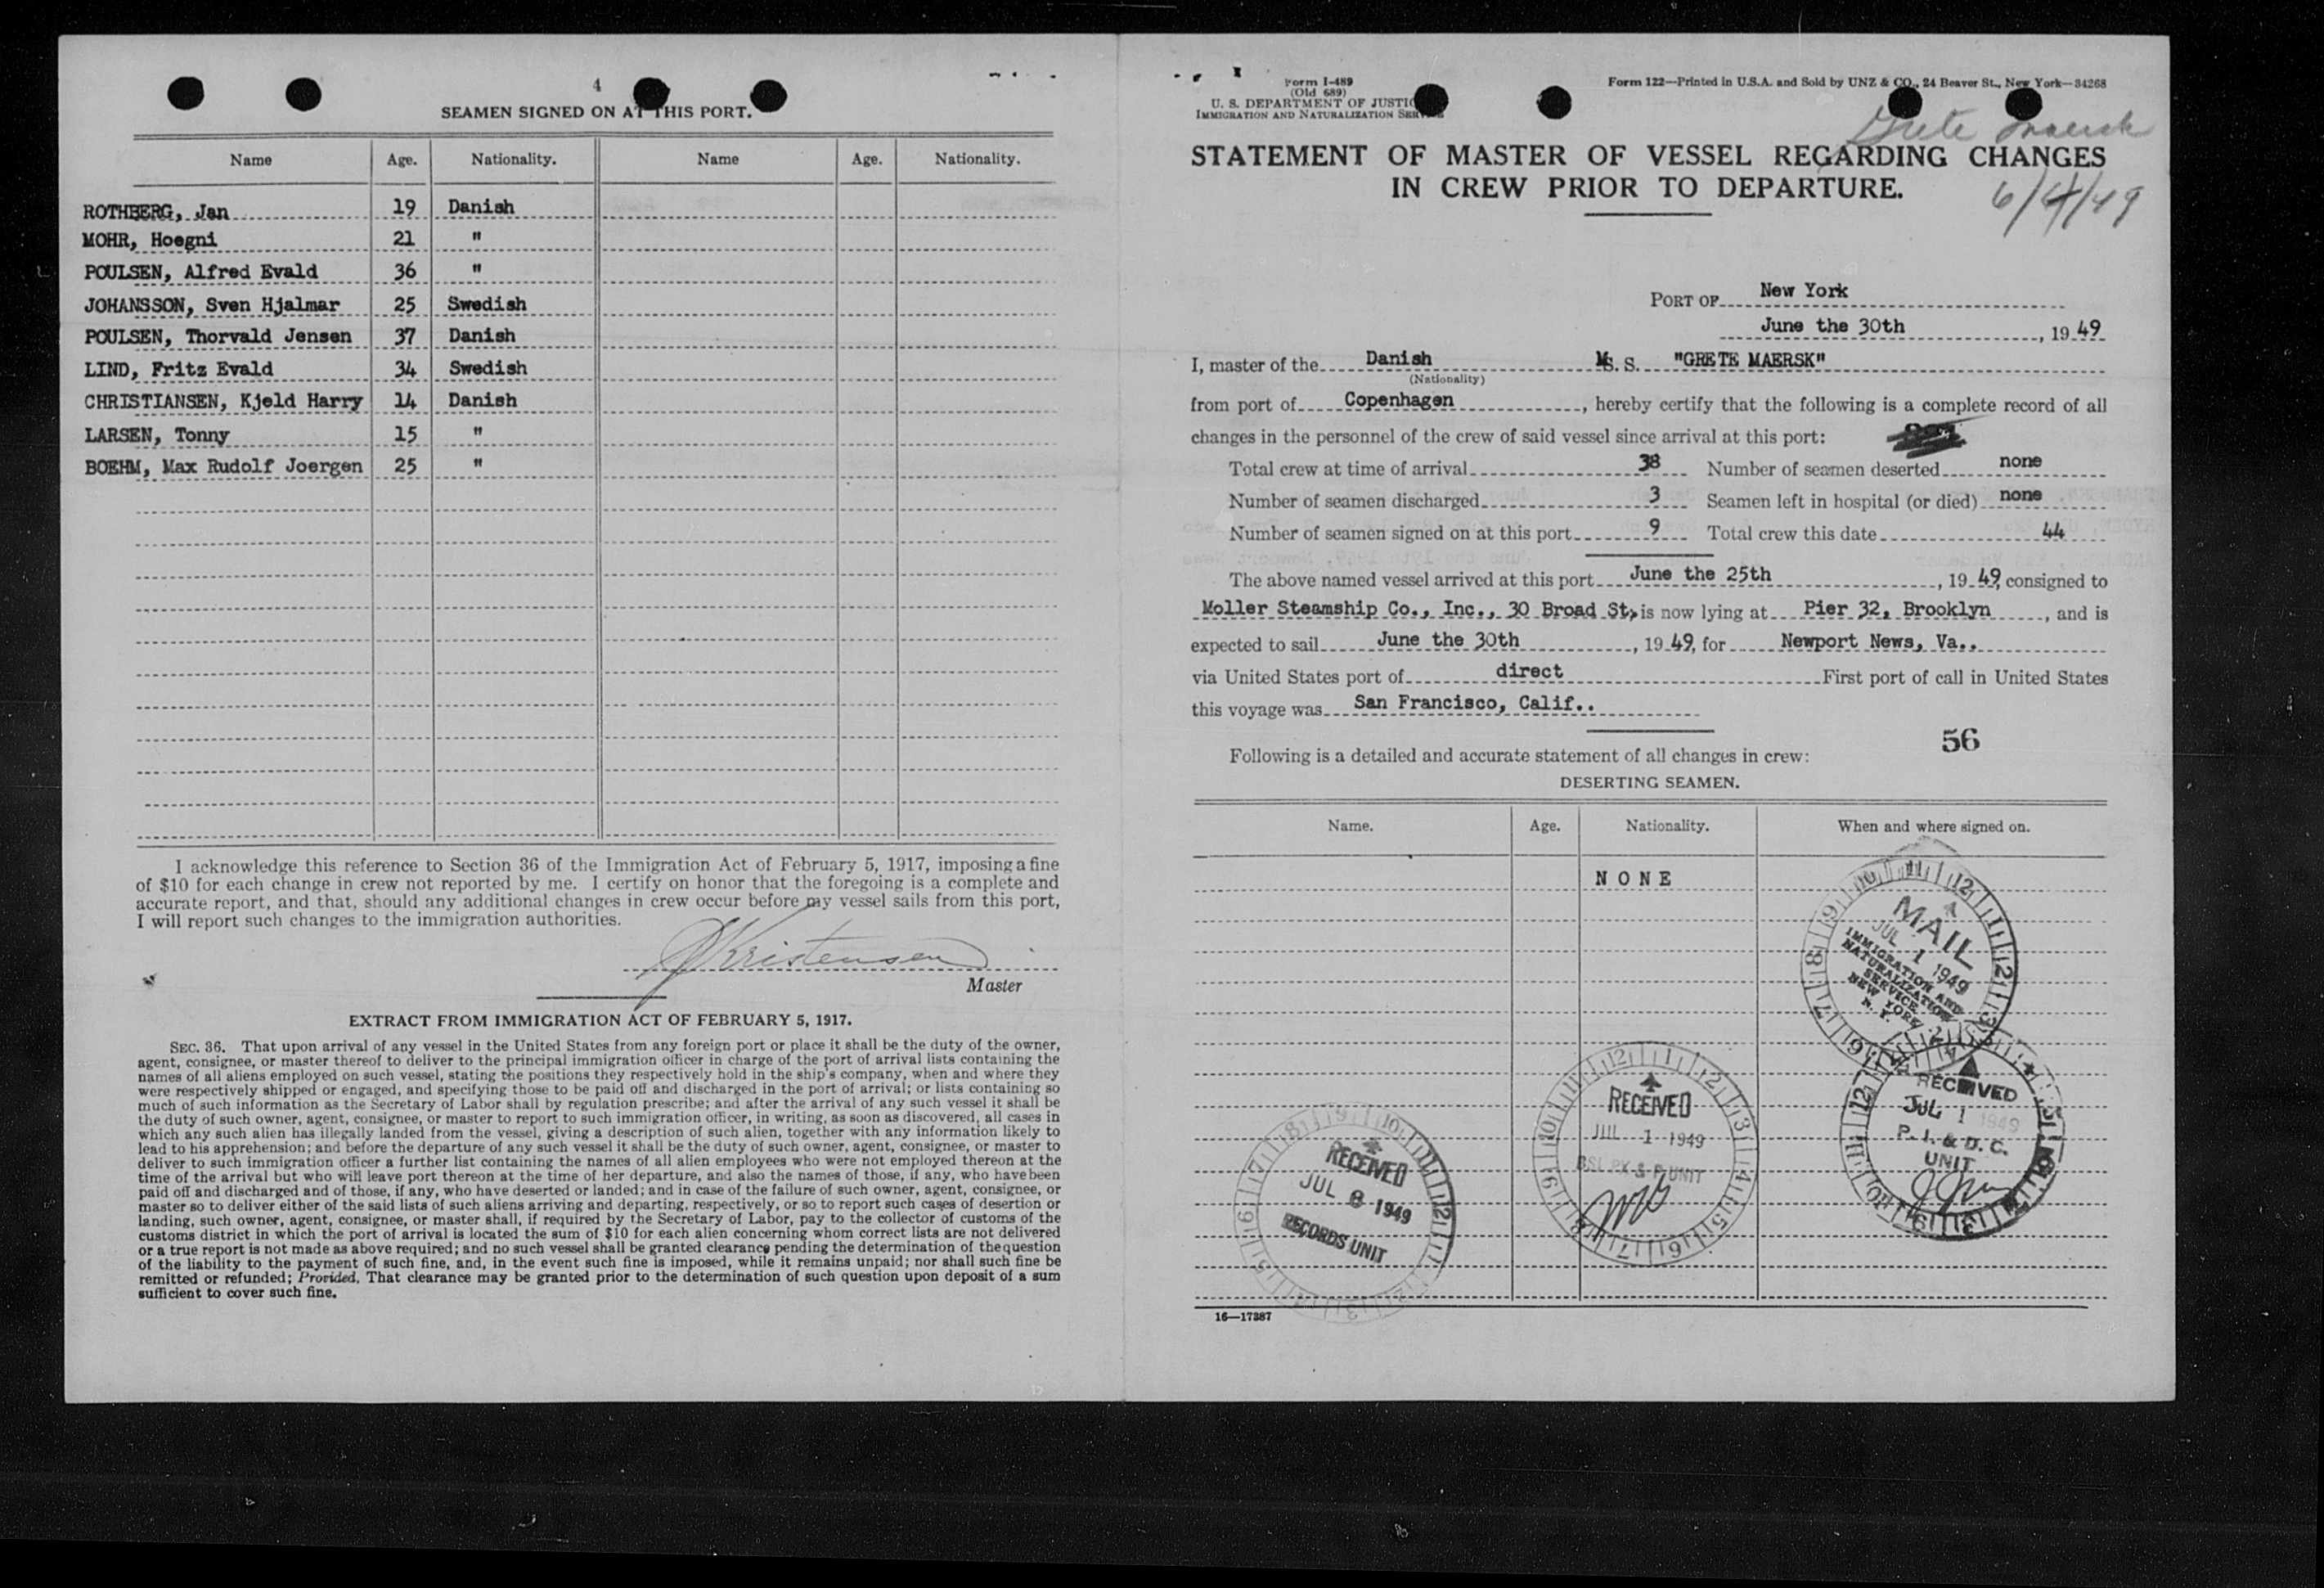 4
SEAMEN SIGNED ON AT THIS PORT.
Name Age. Nationality. Name Age. Nationality.
ROTHBERG, Jan 19 Danish
MOHR, Hoegni 21 "
POULSEN, Alfred Evald 36 "
JOHANSSON, Sven Hjalmar 25 Swedish
POULSEN, Thorvald Jensen 37 Danish
LIND, Fritz Evald 34 Swedish
CHRISTIANSEN, Kjeld Harry 14 Danish
LARSEN, Tonny 15 "
BOEHM, Max Rudolf Joergen 25 "
I acknowledge this reference to Section 36 of the Immigration Act of February 5, 1917, imposing a fine
of $10 for each change in crew not reported by me. I certify on honor that the foregoing is a complete and
accurate report, and that, should any additional changes in crew occur before my vessel sails from this port,
I will report such changes to the immigration authorities.
Kristensen
Master
EXTRACT FROM IMMIGRATION ACT OF FEBRUARY 5, 1917.
SEC. 36. That upon arrival of any vessel in the United States from any foreign port or place it shall be the duty of the owner,
agent, consignee, or master thereof to deliver to the principal immigration officer in charge of the port of arrival lists containing the
names of all aliens employed on such vessel, stating the positions they respectively hold in the ship's company, when and where they
were respectively shipped or engaged, and specifying those to be paid off and discharged in the port of arrival; or lists containing so
much of such information as the Secretary of Labor shall by regulation prescribe; and after the arrival of any such vessel it shall be
the duty of such owner, agent, consignee, or master to report to such immigration officer, in writing, as soon as discovered, all cases in
which any such alien has illegally landed from the vessel, giving a description of such alien, together with any information likely to
lead to his apprehension; and before the departure of any such vessel it shall be the duty of such owner, agent, consignee, or master to
deliver to such immigration officer a further list containing the names of all alien employees who were not employed thereon at the
time of the arrival but who will leave port thereon at the time of her departure, and also the names of those, if any, who have been
paid off and discharged and of those, if any, who have deserted or landed; and in case of the failure of such owner, agent, consignee, or
master so to deliver either of the said lists of such aliens arriving and departing, respectively, or so to report such cases of desertion or
landing, such owner, agent, consignee, or master shall, if required by the Secretary of Labor, pay to the collector of customs of the
customs district in which the port of arrival is located the sum of $10 for each alien concerning whom correct lists are not delivered
or a true report is not made as above required; and no such vessel shall be granted clearance pending the determination of the question
of the liability to the payment of such fine, and, in the event such fine is imposed, while it remains unpaid; nor shall such fine be
remitted or refunded; Provided, That clearance may be granted prior to the determination of such question upon deposit of a sum
sufficient to cover such fine.
Form I-489
(Old 689)
U. S. DEPARTMENT OF JUSTICE
IMMIGRATION AND NATURALIZATION SERVICE
Form 122—Printed in U.S.A. and Sold by UNZ & CO., 24 Beaver St., New York—34268
Grete Maersk
STATEMENT OF MASTER OF VESSEL REGARDING CHANGES
IN CREW PRIOR TO DEPARTURE.
PORT OF New York
June the 30th, 19 49
I, master of the Danish M. S. "GRETE MAERSK"
(Nationality)
from port of Copenhagen, hereby certify that the following is a complete record of all
changes in the personnel of the crew of said vessel since arrival at this port:
Total crew at time of arrival 38 Number of seamen deserted none
Number of seamen discharged 3 Seamen left in hospital (or died) none
Number of seamen signed on at this port 9 Total crew this date 44
The above named vessel arrived at this port June the 25th, 19 49, consigned to
Moller Steamship Co., Inc., 30 Broad St, is now lying at Pier 32, Brooklyn, and is
expected to sail June the 30th, 19 49, for Newport News, Va..
via United States port of direct First port of call in United States
this voyage was San Francisco, Calif..
56
Following is a detailed and accurate statement of all changes in crew:
DESERTING SEAMEN.
Name. Age. Nationality. When and where signed on.
NONE
MAIL
JUL 1 1949
IMMIGRATION AND
NATURALIZATION
SERVICE
NEW YORK
N. Y.
RECEIVED
JUL 1 1949
P. I. & D. C.
UNIT
RECEIVED
JUL 1 1949
UNIT
RECEIVED
JUL 8 1949
RECORDS UNIT
16—17387